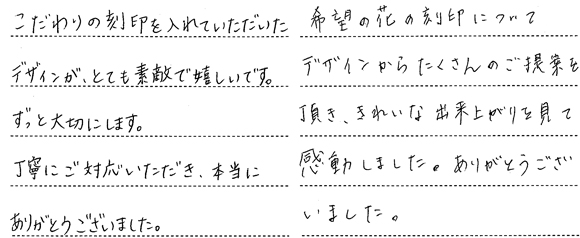 こだわりの刻印を入れていただいた
デザインが、とても素敵で嬉しいです。
ずっと大切にします。
丁寧にご対応いただき、本当に
ありがとうございました。
希望の花の刻印について
デザインからたくさんのご提案を
頂き、きれいな出来上がりを見て
感動しました。ありがとうござ
いました。